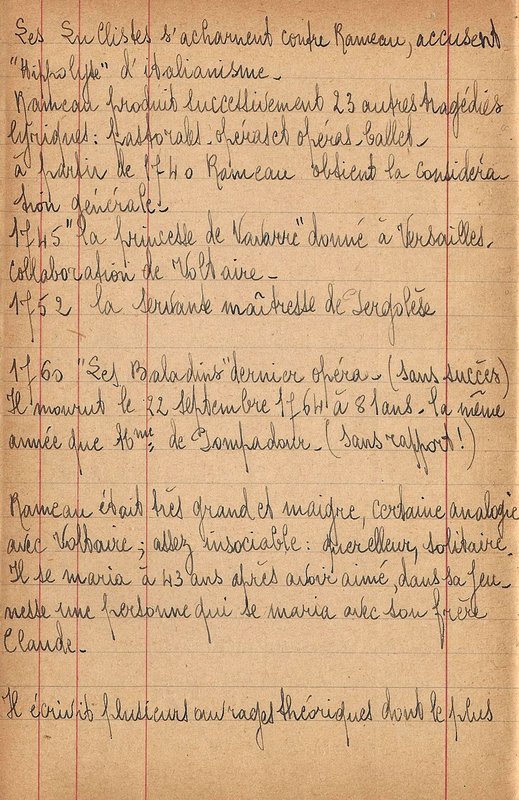 Les Lullistes s'acharnent contre Rameau, accusent
"Hippolyte" d'italianisme_
Rameau produit successivement 23 autres tragédies
lyriques: pastorales_ opéras et opéras-ballet_
à partir de 1740 Rameau obtient la considéra-
tion générale_
1745 "la princesse de Navarre" donné à Versailles.
collaboration de Voltaire_
1752 la servante maîtresse de Pergolèse
1760 "Les Paladins" dernier opéra_ (sans succès)
Il mourut le 22 septembre 1764 à 81 ans_ la même
année que Mme de Pompadour_ (sans rapport!)
Rameau était très grand et maigre, certaine analogie
avec Voltaire; assez insociable: querelleur, solitaire.
Il se maria à 43 ans après avoir aimé, dans sa jeu-
nesse une personne qui se maria avec son frère
Claude_
Il écrivit plusieurs ouvrages théoriques dont le plus